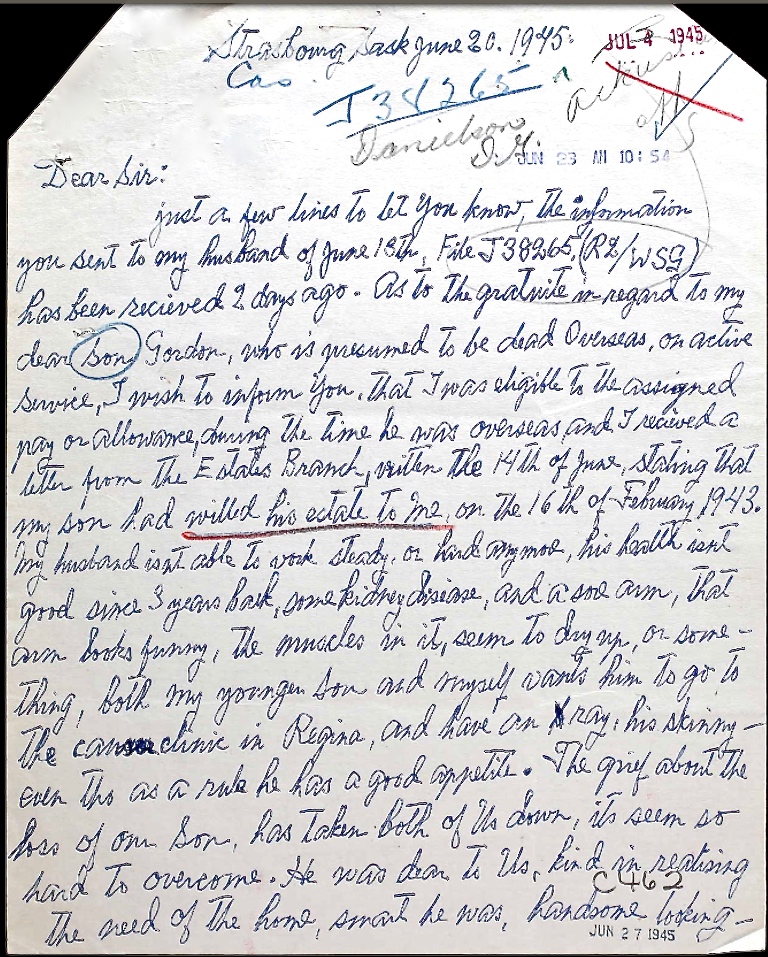 Strasbourg Sask June 20. 1945.
JUL 4 1945
Cas
J38265
Danielson
D.G.
JUN 23 AM 10:54
Dear Sir:
just a few lines to let you know, the information
you sent to my husband of June 13th, File J38265, (R2/WSG)
has been recieved 2 days ago. As to the gratuite in regard to my
dear son Gordon, who is presumed to be dead Overseas, on active
service, I wish to inform you, that I was eligible to the assigned
pay or allowance, during the time he was overseas, and I recieved a
letter from the Estates Branch, written the 14th of June, stating that
my son had willed his estate to me, on the 16th of February 1943.
My husband isnt able to work steady, or hard anymore, his health isnt
good since 3 years back, some kidney disease, and a sore arm, that
arm looks funny, the muscles in it, seem to dry up, or some-
thing, both my younger son and myself wants him to go to
the cancer clinic in Regina, and have an Xray, his skinny-
even tho as a rule he has a good appetite. The grief about the
loss of our son, has taken both of us down, its seem so
hard to overcome. He was dear to us, kind in realising
C462
the need of the home, smart he was, handsome looking-
JUN 27 1945